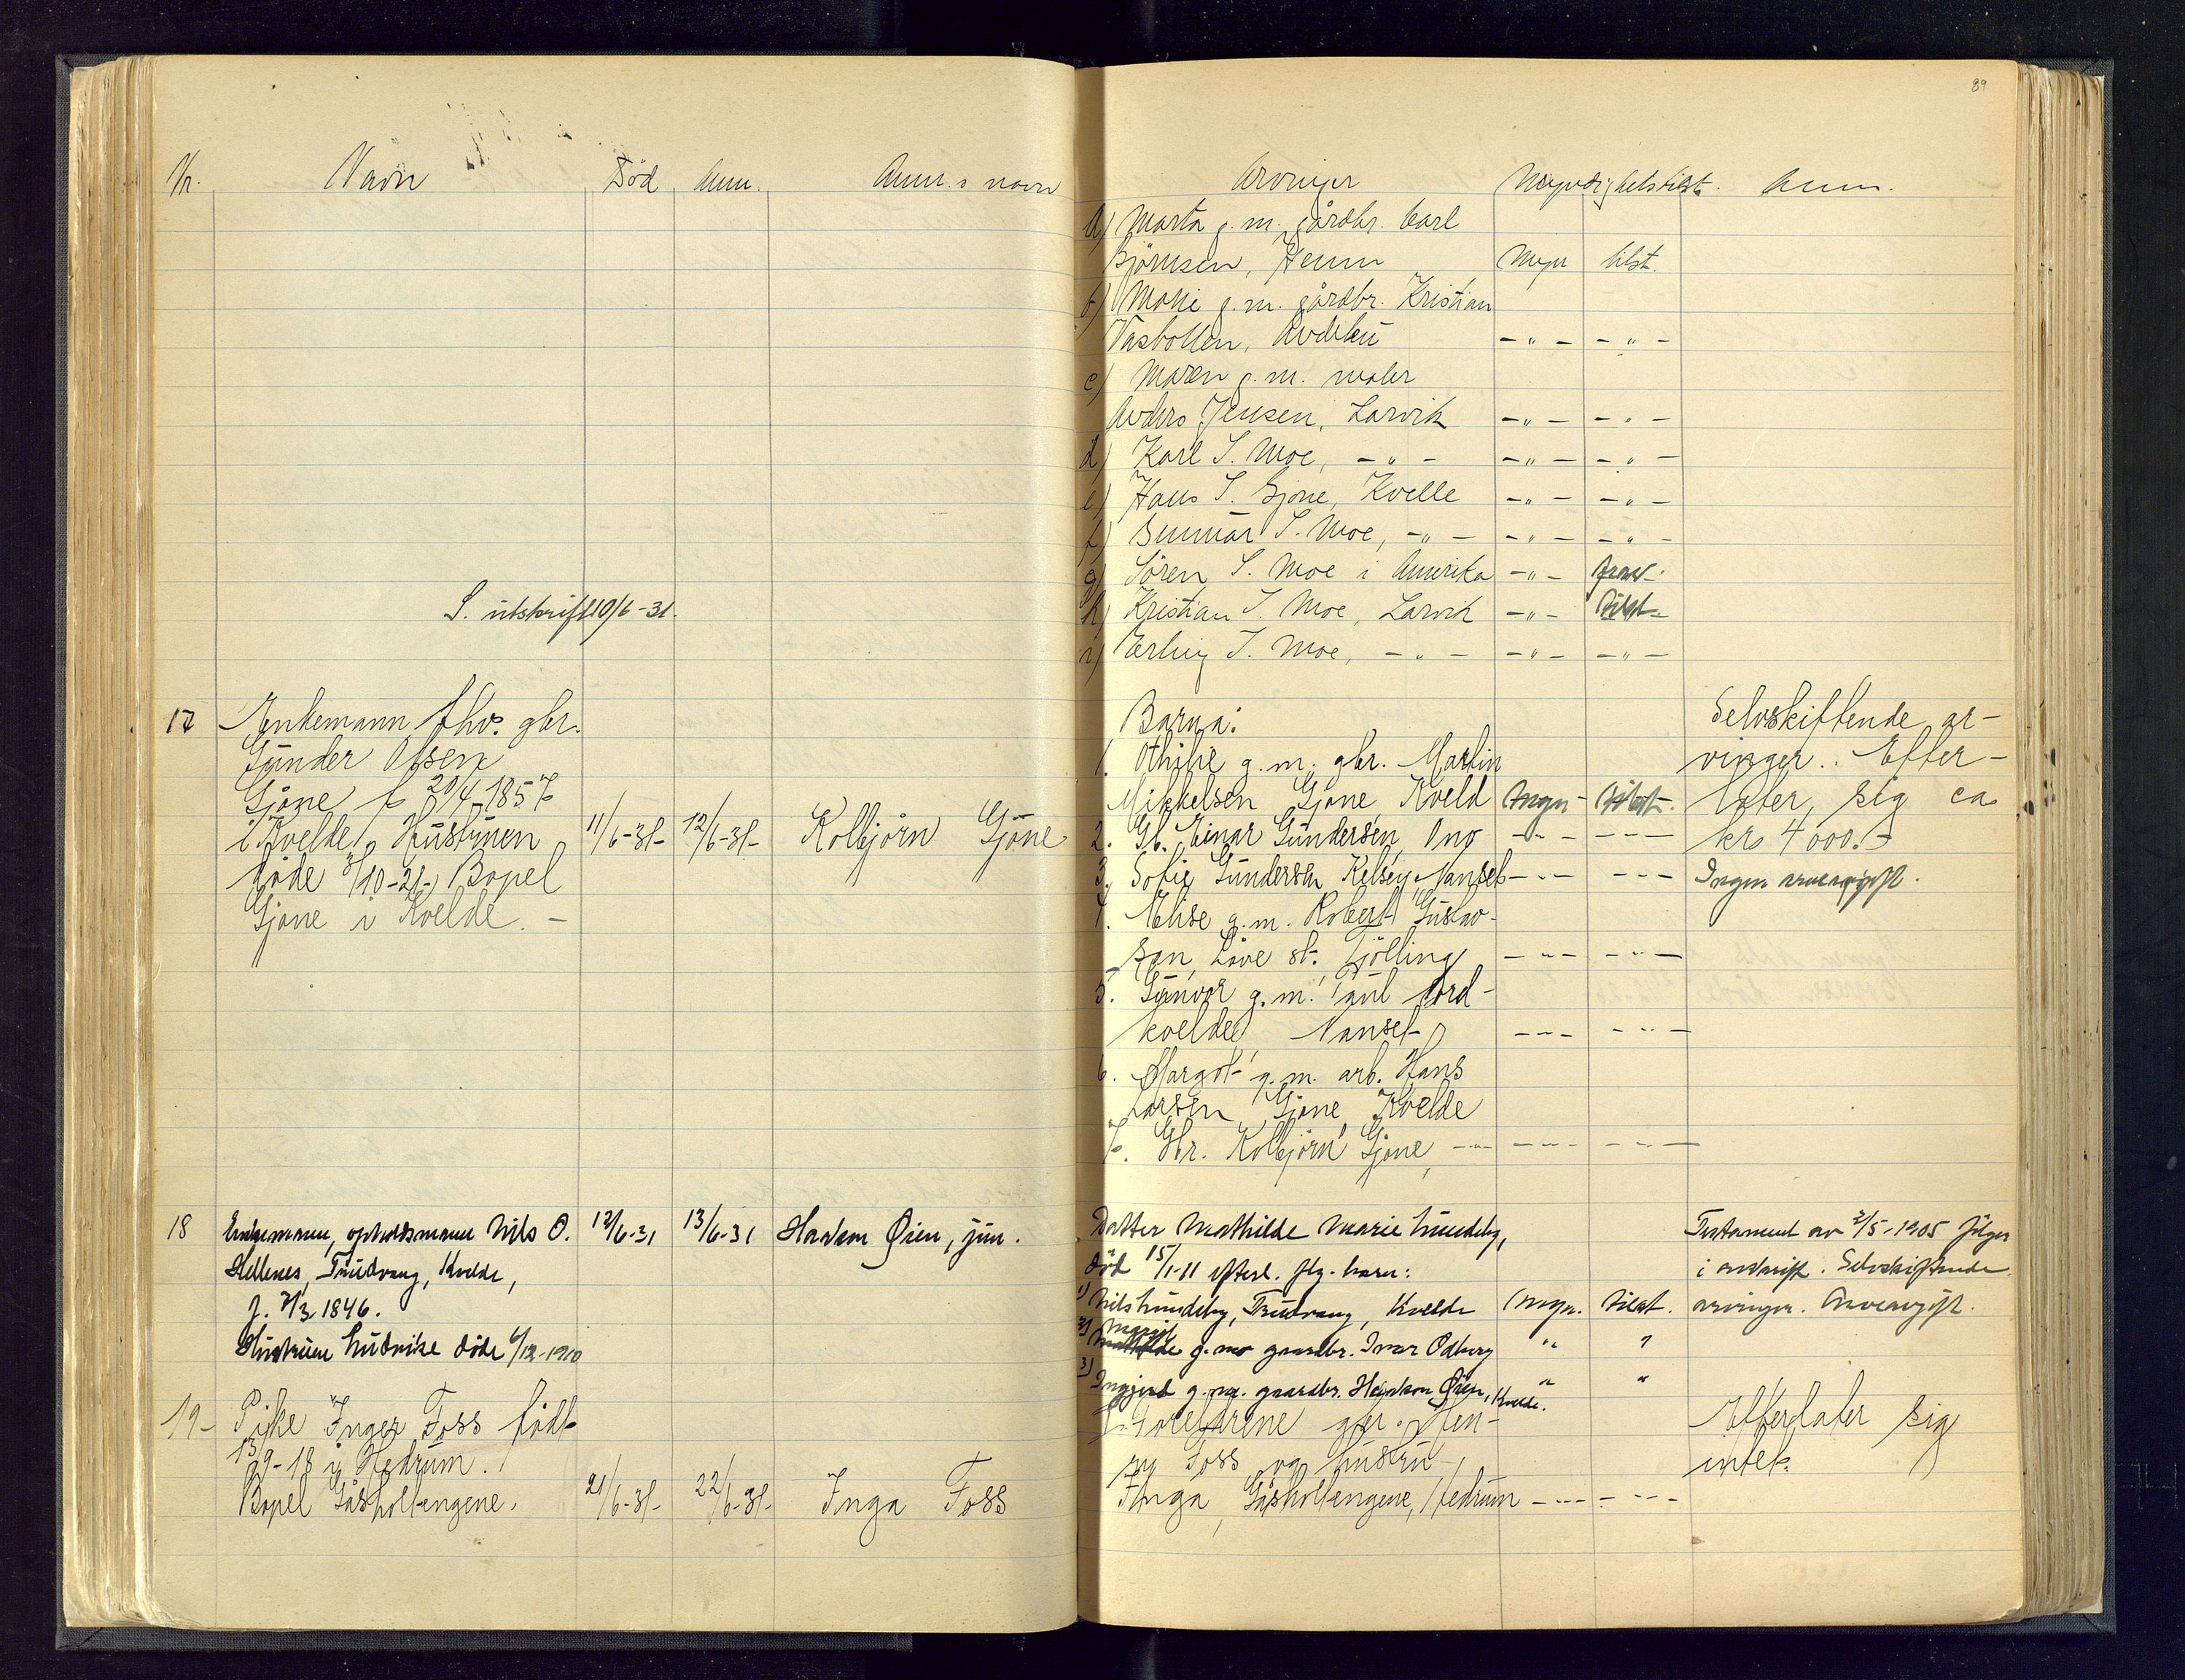 89
Nr. Navn Död Anm. Anm.s navn
S. utskrift 10/6-31.
17 Enkemann fhv. gbr.
Gunder Olsen
Gjöne f. 20/4 1857
i Kvelde. Hustruen
döde 8/10-21. Bopel
Gjöne i Kvelde. -
11/6-31- 12/6-31- Kolbjörn Gjöne
18 Enkemann, opholdsmann Nils O. 12/6-31 13/6-31 Haakon Øien, jun.
Hellenes, Trudvang, Kvelde,
f. 7/3 1846.
Hustruen Ludvike döde 6/12-1910
19- Pike Inger Foss födt
13/9-18 i Hedrum.
Bopel Gåsholtengene. 21/6-31- 22/6-31- Inga Foss
Arvinger Myndighetstilst. Anm.
a) Marta g. m. gårdbr. Carl
Björnsen, Myn tilst.
b) g. m. gårdbr. Kristian
Vasbotten, - " - - " -
c) Maren g. m. maler
Anders Jensen, Larvik - " - - " -
d) Karl S. Moe, - " - - " - - " -
e) Hans S. Gjone, Kvelle - " - - " -
f) Gunnar S. Moe, - " - - " - - " -
g) Sören S. Moe i Amerika - " - frav.
h) Kristian S. Moe, Larvik - " - tilst.
i) Erling S. Moe, - " - - " - - " -
Barna: Selvskiftende ar-
1. Othilie g. m. gbr. Martin vinger. Efter-
Mikkelsen Gjöne, Kveld Myn- tilst. later sig ca
2. Gb. Einar Gundersen, Ono - " - - " - kr. 4000.-
3. Sofie Gundersen Kelsey, Nanset - " - - " - Ingen arveavgift.
4. Elise g. m. Robert Gustav-
sen, Löve st. Tjölling - " - - " -
5. Gunvor g. m. Paul Nord-
kvelde, Nanset - " - - " -
6. Margot g. m. arb. Hans
Larsen Gjöne, Kvelde
7. Gbr. Kolbjörn Gjöne, - " - - " - - " -
Datter Mathilde Marie Lundeby, Testament av 2/5-1905 fölger
död 15/1-11 efterl. flg. barn: i avskrift. Selvskiftende
1) Nils Lundeby, Trudvang, Kvelde Myn. tilst. arvinger. Arveavgift.
2) Margit g. m. gaardbr. Ivar Odberg " "
3) Ingjerd g. m. gaardbr. Haakon Øien, Kvelde. " "
Foreldrene gbr. Hen- Efterlater sig
ry Foss og hustru intet.
Inga, Gåsholtengene, Hedrum - " - - " -